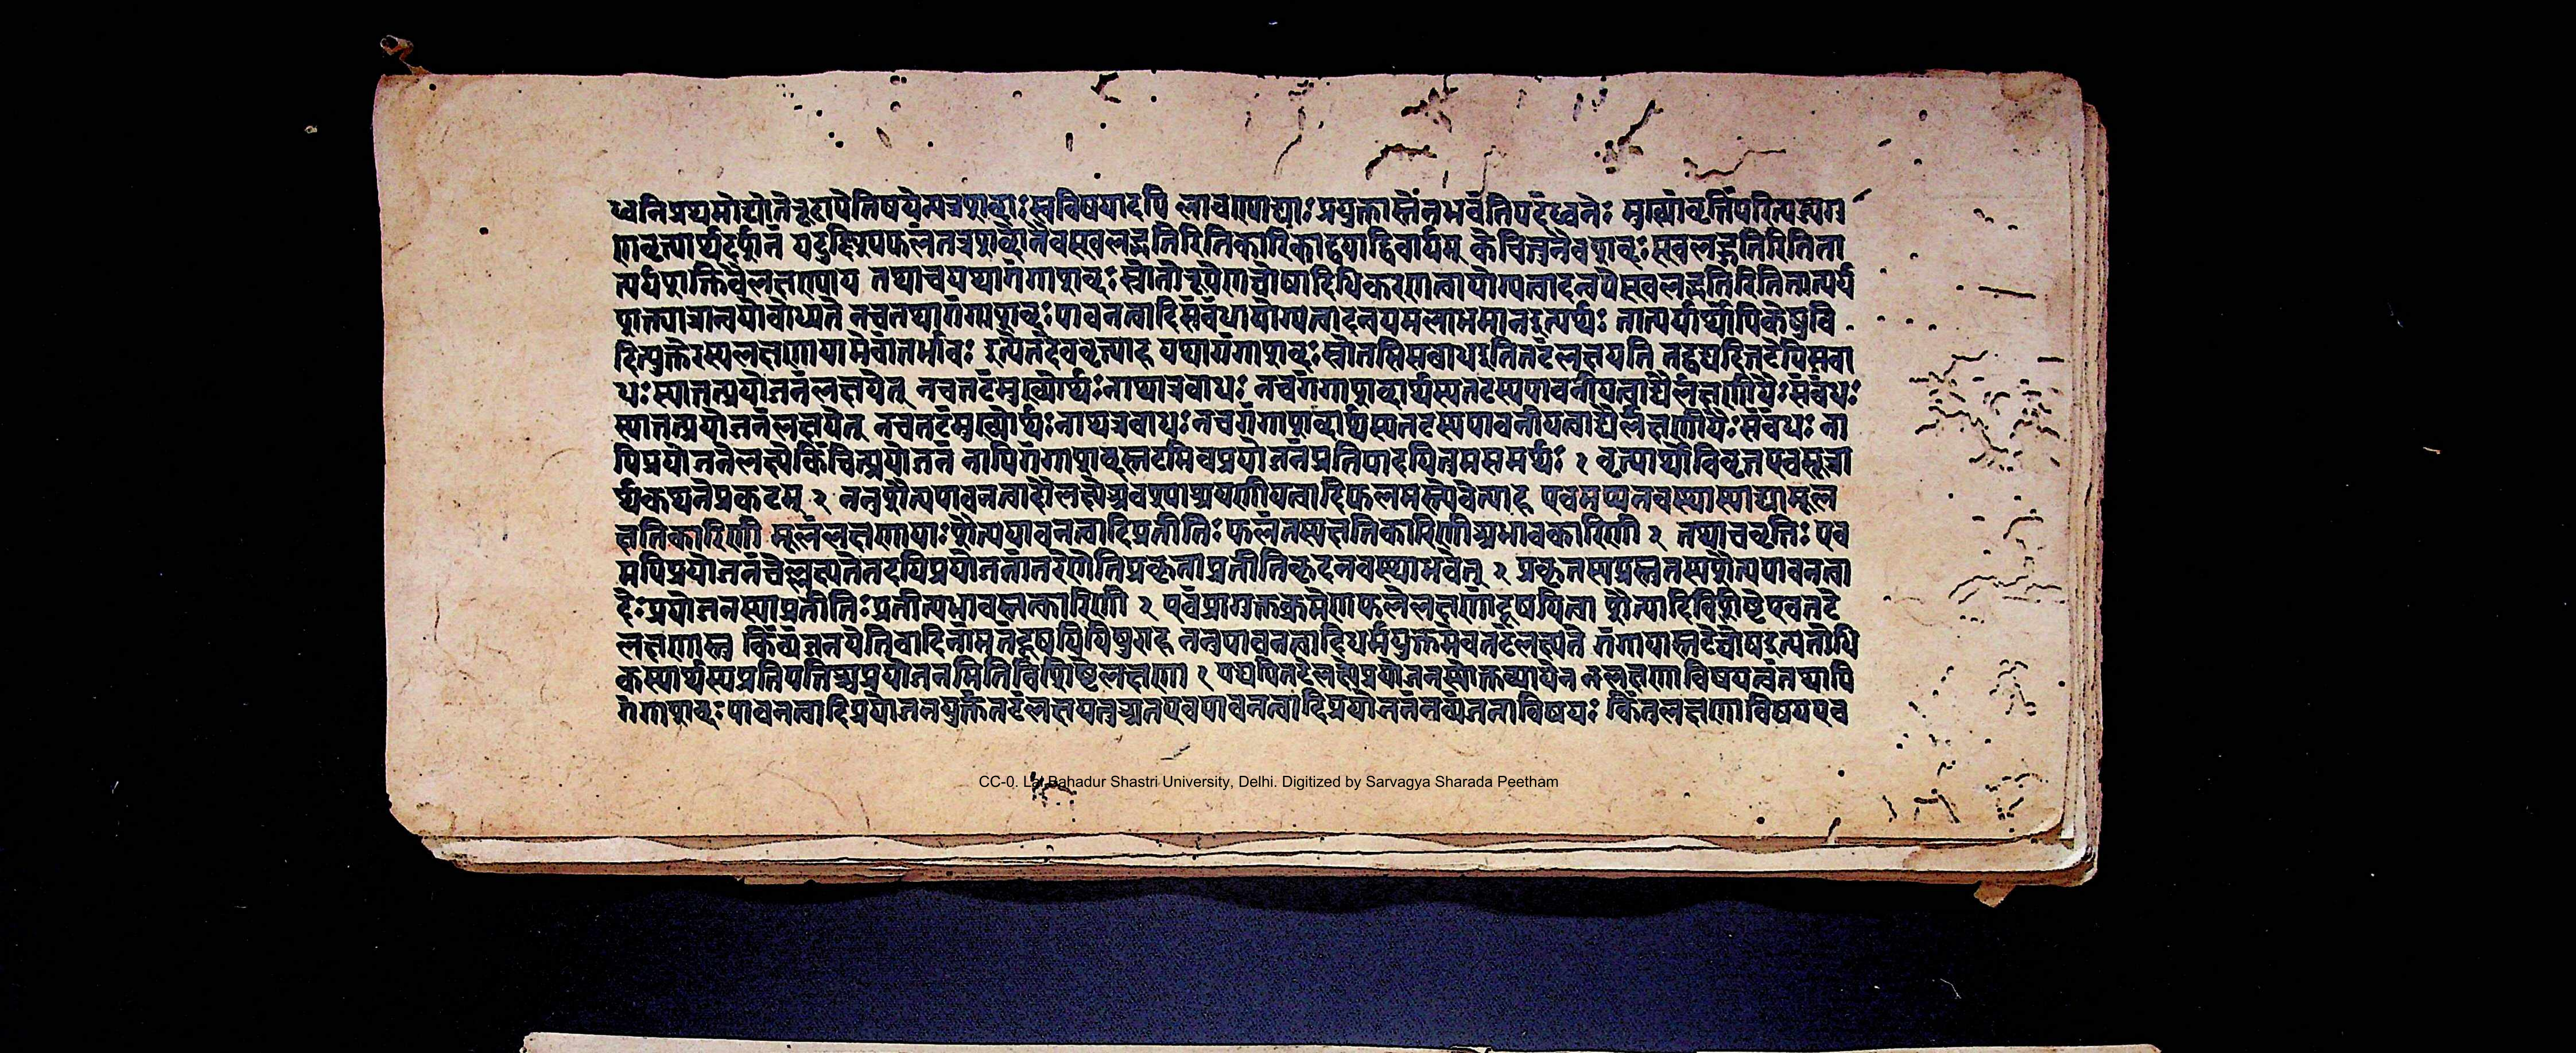 ध्वनिप्रथमोद्योतेरूढायेतिषयेन्यत्रशब्दाः स्वविषयादपि लावण्याद्याः प्रयुक्तास्तेनभवंतिपदंध्वनेः मुख्यांवृत्तिंपरित्यज्यग
णवृत्त्यार्थदर्शनं यदुद्दिश्यफलंतत्रशब्दोनैवस्खलद्गतिरितिकारिकाद्वयाद्विवार्थम् केचित्तुनैवशब्दः स्खलद्गतिरितिता
त्पर्यशक्तिर्वैलक्षण्याय तथाचयथागंगाशब्दः स्रोतोरूपेणघोषादिधिकरणत्वायोग्यत्वादन्वयेस्खलद्गतिरितितात्पर्य
शक्त्यात्रान्वयोबोध्यते नचतथागंगाशब्दः पावनत्वादिसंबंधायोग्यत्वादन्वयमलभमानइत्यर्थः तात्पर्यार्थोपिकेषुचि
दित्युक्तेरस्यलक्षणायामेवांतर्भावः इत्येतदेववृत्त्याह यथागंगाशब्दः स्रोतसिसबाधइतितटंलक्षयति तद्वद्यदितटेपिसबा
धः स्यात्तत्प्रयोजनंलक्षयेत् नचतटंमुख्योर्थः नाप्यत्रबाधः नचगंगाशब्दार्थस्यतटस्यपावनीयत्वाद्यैर्लक्षणीयैः संबंधः
स्यात्तत्प्रयोजनंलक्षयेत् नचतटंमुख्योर्थः नाप्यत्रबाधः नचगंगाशब्दार्थस्यतटस्यपावनीयत्वाद्यैर्लक्षणीयैः संबंधः ना
पिप्रयोजनेलक्ष्येकिंचित्प्रयोजनं नापिगंगाशब्दस्तटमिवप्रयोजनंप्रतिपादयितुमसमर्थः १ वृत्त्यार्थोविवृतएवसूत्रा
र्थकथनेप्रकटम् २ ननुशैत्यपावनत्वादौलक्ष्येअवश्याश्रयणीयत्वादिफलमस्त्येवेत्याह एवमप्यनवस्थास्याद्यामूल
क्षतिकारिणी मूलंलक्षणायाः शैत्यपावनत्वादिप्रतीतिः फलंतस्यक्षतिकारिणीअभावकारिणी २ तथाचवृत्तिः एव
मपिप्रयोजनंचेल्लक्ष्यतेतदपिप्रयोजनांतरेणेतिप्रकृताप्रतीतिकृदनवस्थाभवेत् २ प्रकृतस्यप्रस्तुतस्यशैत्यपावनत्वा
देः प्रयोजनस्याप्रतीतिः प्रतीत्यभावस्तत्कारिणी २ एवंप्रागुक्तक्रमेणफलेलक्षणांदूषयित्वा शैत्यादिविशिष्टेएवतटे
लक्षणास्तु किंव्यंजनयेतिवादिनांमतंदूषयिषुराह ननुपावनत्वादिधर्मयुक्तमेवतटंलक्ष्यते गंगायास्तटेघोषइत्यतोधि
कस्यार्थस्यप्रतिपत्तिश्चप्रयोजनमितिविशिष्टेलक्षणा १ यद्यपितटेलक्ष्येप्रयोजनस्योक्तन्यायेन नलक्षणाविषयत्वंतथापि
गंगाशब्दः पावनत्वादिप्रयोजनयुक्तंतटंलक्षयतुअतएवपावनत्वादिप्रयोजनंनव्यंजनाविषयः किंतुलक्षणाविषयएव
CC-0. Lal Bahadur Shastri University, Delhi. Digitized by Sarvagya Sharada Peetham